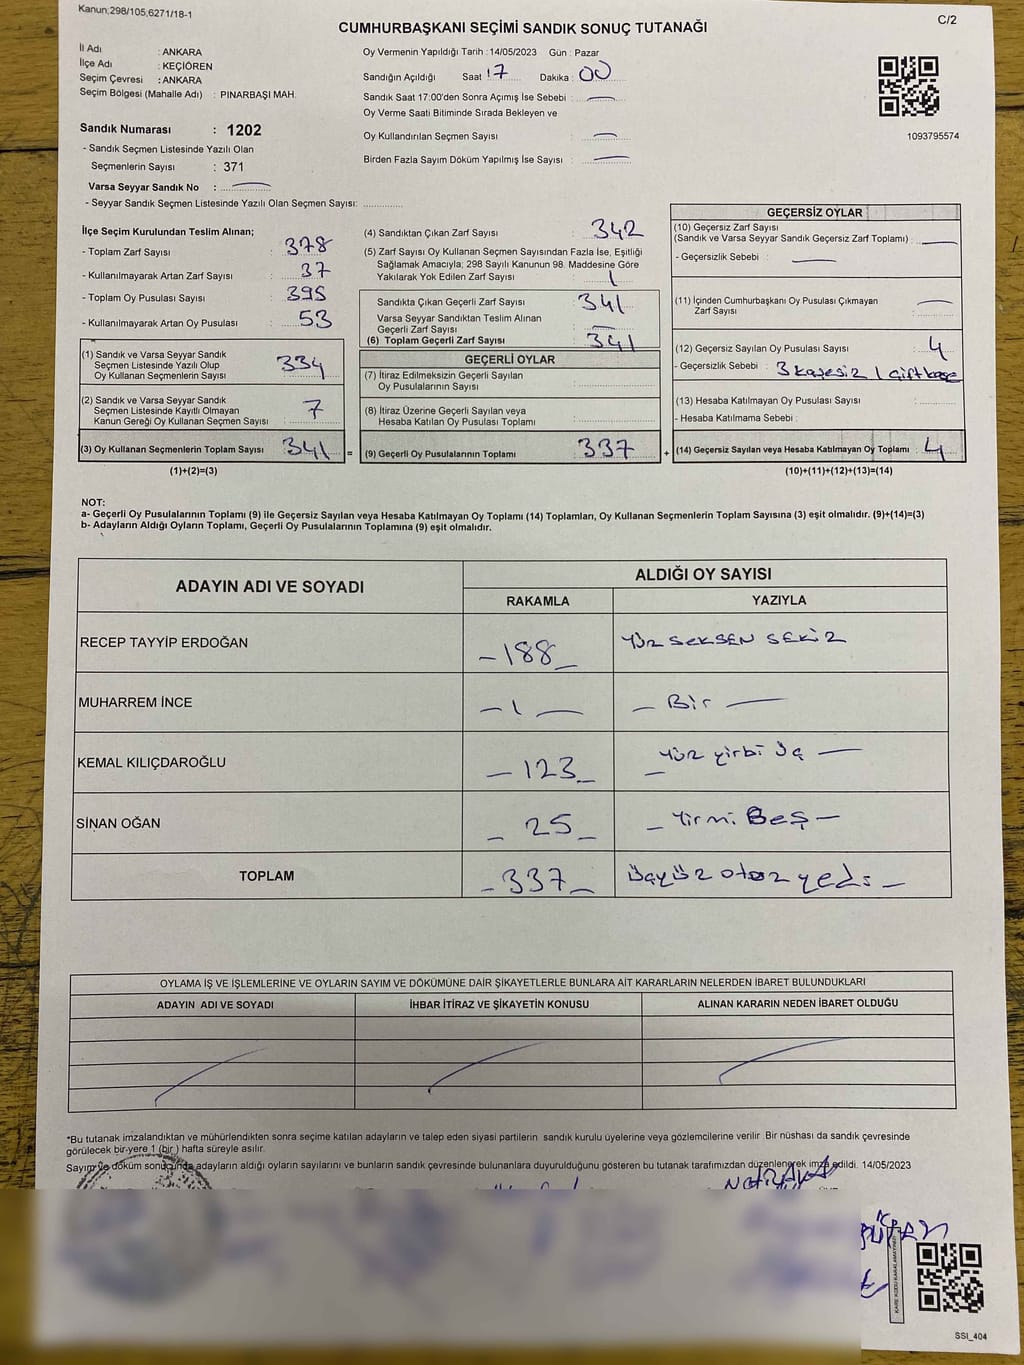 Kanun;298/105,6271/18-1
C/2
CUMHURBAŞKANI SEÇİMİ SANDIK SONUÇ TUTANAĞI
İl Adı : ANKARA
İlçe Adı : KEÇİÖREN
Seçim Çevresi : ANKARA
Seçim Bölgesi (Mahalle Adı) : PINARBAŞI MAH.
Oy Vermenin Yapıldığı Tarih : 14/05/2023 Gün : Pazar
Sandığın Açıldığı Saat : 17 Dakika : 00
Sandık Saat 17:00'den Sonra Açmış İse Sebebi : —
Oy Verme Saati Bitiminde Sırada Bekleyen ve
Oy Kullandırılan Seçmen Sayısı : —
Birden Fazla Sayım Döküm Yapılmış İse Sayısı : —
1093795574
Sandık Numarası : 1202
- Sandık Seçmen Listesinde Yazılı Olan
Seçmenlerin Sayısı : 371
Varsa Seyyar Sandık No : —
- Seyyar Sandık Seçmen Listesinde Yazılı Olan Seçmen Sayısı: ..............
İlçe Seçim Kurulundan Teslim Alınan;
- Toplam Zarf Sayısı : 378
- Kullanılmayarak Artan Zarf Sayısı : 37
- Toplam Oy Pusulası Sayısı : 395
- Kullanılmayarak Artan Oy Pusulası : 53
(1) Sandık ve Varsa Seyyar Sandık
Seçmen Listesinde Yazılı Olup
Oy Kullanan Seçmenlerin Sayısı : 334
(2) Sandık ve Varsa Seyyar Sandık
Seçmen Listesinde Kayıtlı Olmayan
Kanun Gereği Oy Kullanan Seçmen Sayısı : 7
(3) Oy Kullanan Seçmenlerin Toplam Sayısı : 341 =
(1)+(2)=(3)
(4) Sandıktan Çıkan Zarf Sayısı : 342
(5) Zarf Sayısı Oy Kullanan Seçmen Sayısından Fazla İse, Eşitliği
Sağlamak Amacıyla; 298 Sayılı Kanunun 98. Maddesine Göre
Yakılarak Yok Edilen Zarf Sayısı : 1
Sandıkta Çıkan Geçerli Zarf Sayısı : 341
Varsa Seyyar Sandıktan Teslim Alınan
Geçerli Zarf Sayısı : —
(6) Toplam Geçerli Zarf Sayısı : 341
GEÇERLİ OYLAR
(7) İtiraz Edilmeksizin Geçerli Sayılan
Oy Pusulalarının Sayısı :
(8) İtiraz Üzerine Geçerli Sayılan veya
Hesaba Katılan Oy Pusulası Toplamı :
(9) Geçerli Oy Pusulalarının Toplamı : 337 +
GEÇERSİZ OYLAR
(10) Geçersiz Zarf Sayısı
(Sandık ve Varsa Seyyar Sandık Geçersiz Zarf Toplamı) : —
- Geçersizlik Sebebi : —
(11) İçinden Cumhurbaşkanı Oy Pusulası Çıkmayan
Zarf Sayısı : —
(12) Geçersiz Sayılan Oy Pusulası Sayısı : 4
- Geçersizlik Sebebi : 3 kaşesiz 1 çift kaşe
(13) Hesaba Katılmayan Oy Pusulası Sayısı :
- Hesaba Katılmama Sebebi :
(14) Geçersiz Sayılan veya Hesaba Katılmayan Oy Toplamı : 4
(10)+(11)+(12)+(13)=(14)
NOT:
a- Geçerli Oy Pusulalarının Toplamı (9) ile Geçersiz Sayılan veya Hesaba Katılmayan Oy Toplamı (14) Toplamları, Oy Kullanan Seçmenlerin Toplam Sayısına (3) eşit olmalıdır. (9)+(14)=(3)
b- Adayların Aldığı Oyların Toplamı, Geçerli Oy Pusulalarının Toplamına (9) eşit olmalıdır.
ADAYIN ADI VE SOYADI
ALDIĞI OY SAYISI
RAKAMLA YAZIYLA
RECEP TAYYİP ERDOĞAN –188– YÜZ SEKSEN SEKİZ
MUHARREM İNCE –1– – Bir –
KEMAL KILIÇDAROĞLU –123– – Yüz yirbi üç –
SİNAN OĞAN –25– – Yirmi BEŞ –
TOPLAM –337– Üçyüz otuz yedi –
OYLAMA İŞ VE İŞLEMLERİNE VE OYLARIN SAYIM VE DÖKÜMÜNE DAİR ŞİKAYETLERLE BUNLARA AİT KARARLARIN NELERDEN İBARET BULUNDUKLARI
ADAYIN ADI VE SOYADI İHBAR İTİRAZ VE ŞİKAYETİN KONUSU ALINAN KARARIN NEDEN İBARET OLDUĞU
*Bu tutanak imzalandıktan ve mühürlendikten sonra seçime katılan adayların ve talep eden siyasi partilerin sandık kurulu üyelerine veya gözlemcilerine verilir .Bir nüshası da sandık çevresinde
görülecek bir yere 1 (bir) hafta süreyle asılır.
Sayım ve döküm sonucunda adayların aldığı oyların sayılarını ve bunların sandık çevresinde bulunanlara duyurulduğunu gösteren bu tutanak tarafımızdan düzenlenerek imza edildi. 14/05/2023
KARE KODU KARALAMAYINIZ
SSI_404